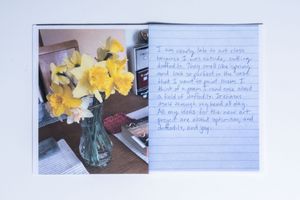 I am nearly late to art class
because I was outside, cutting
daffodils. They smell like spring
and look so perfect in the vase
that I want to paint them. I
think of a poem I read once about
a field of daffodils. Its verses
through my head all day.
All my ideas for the new art
project are about optimism, and
daffodils, and joy.